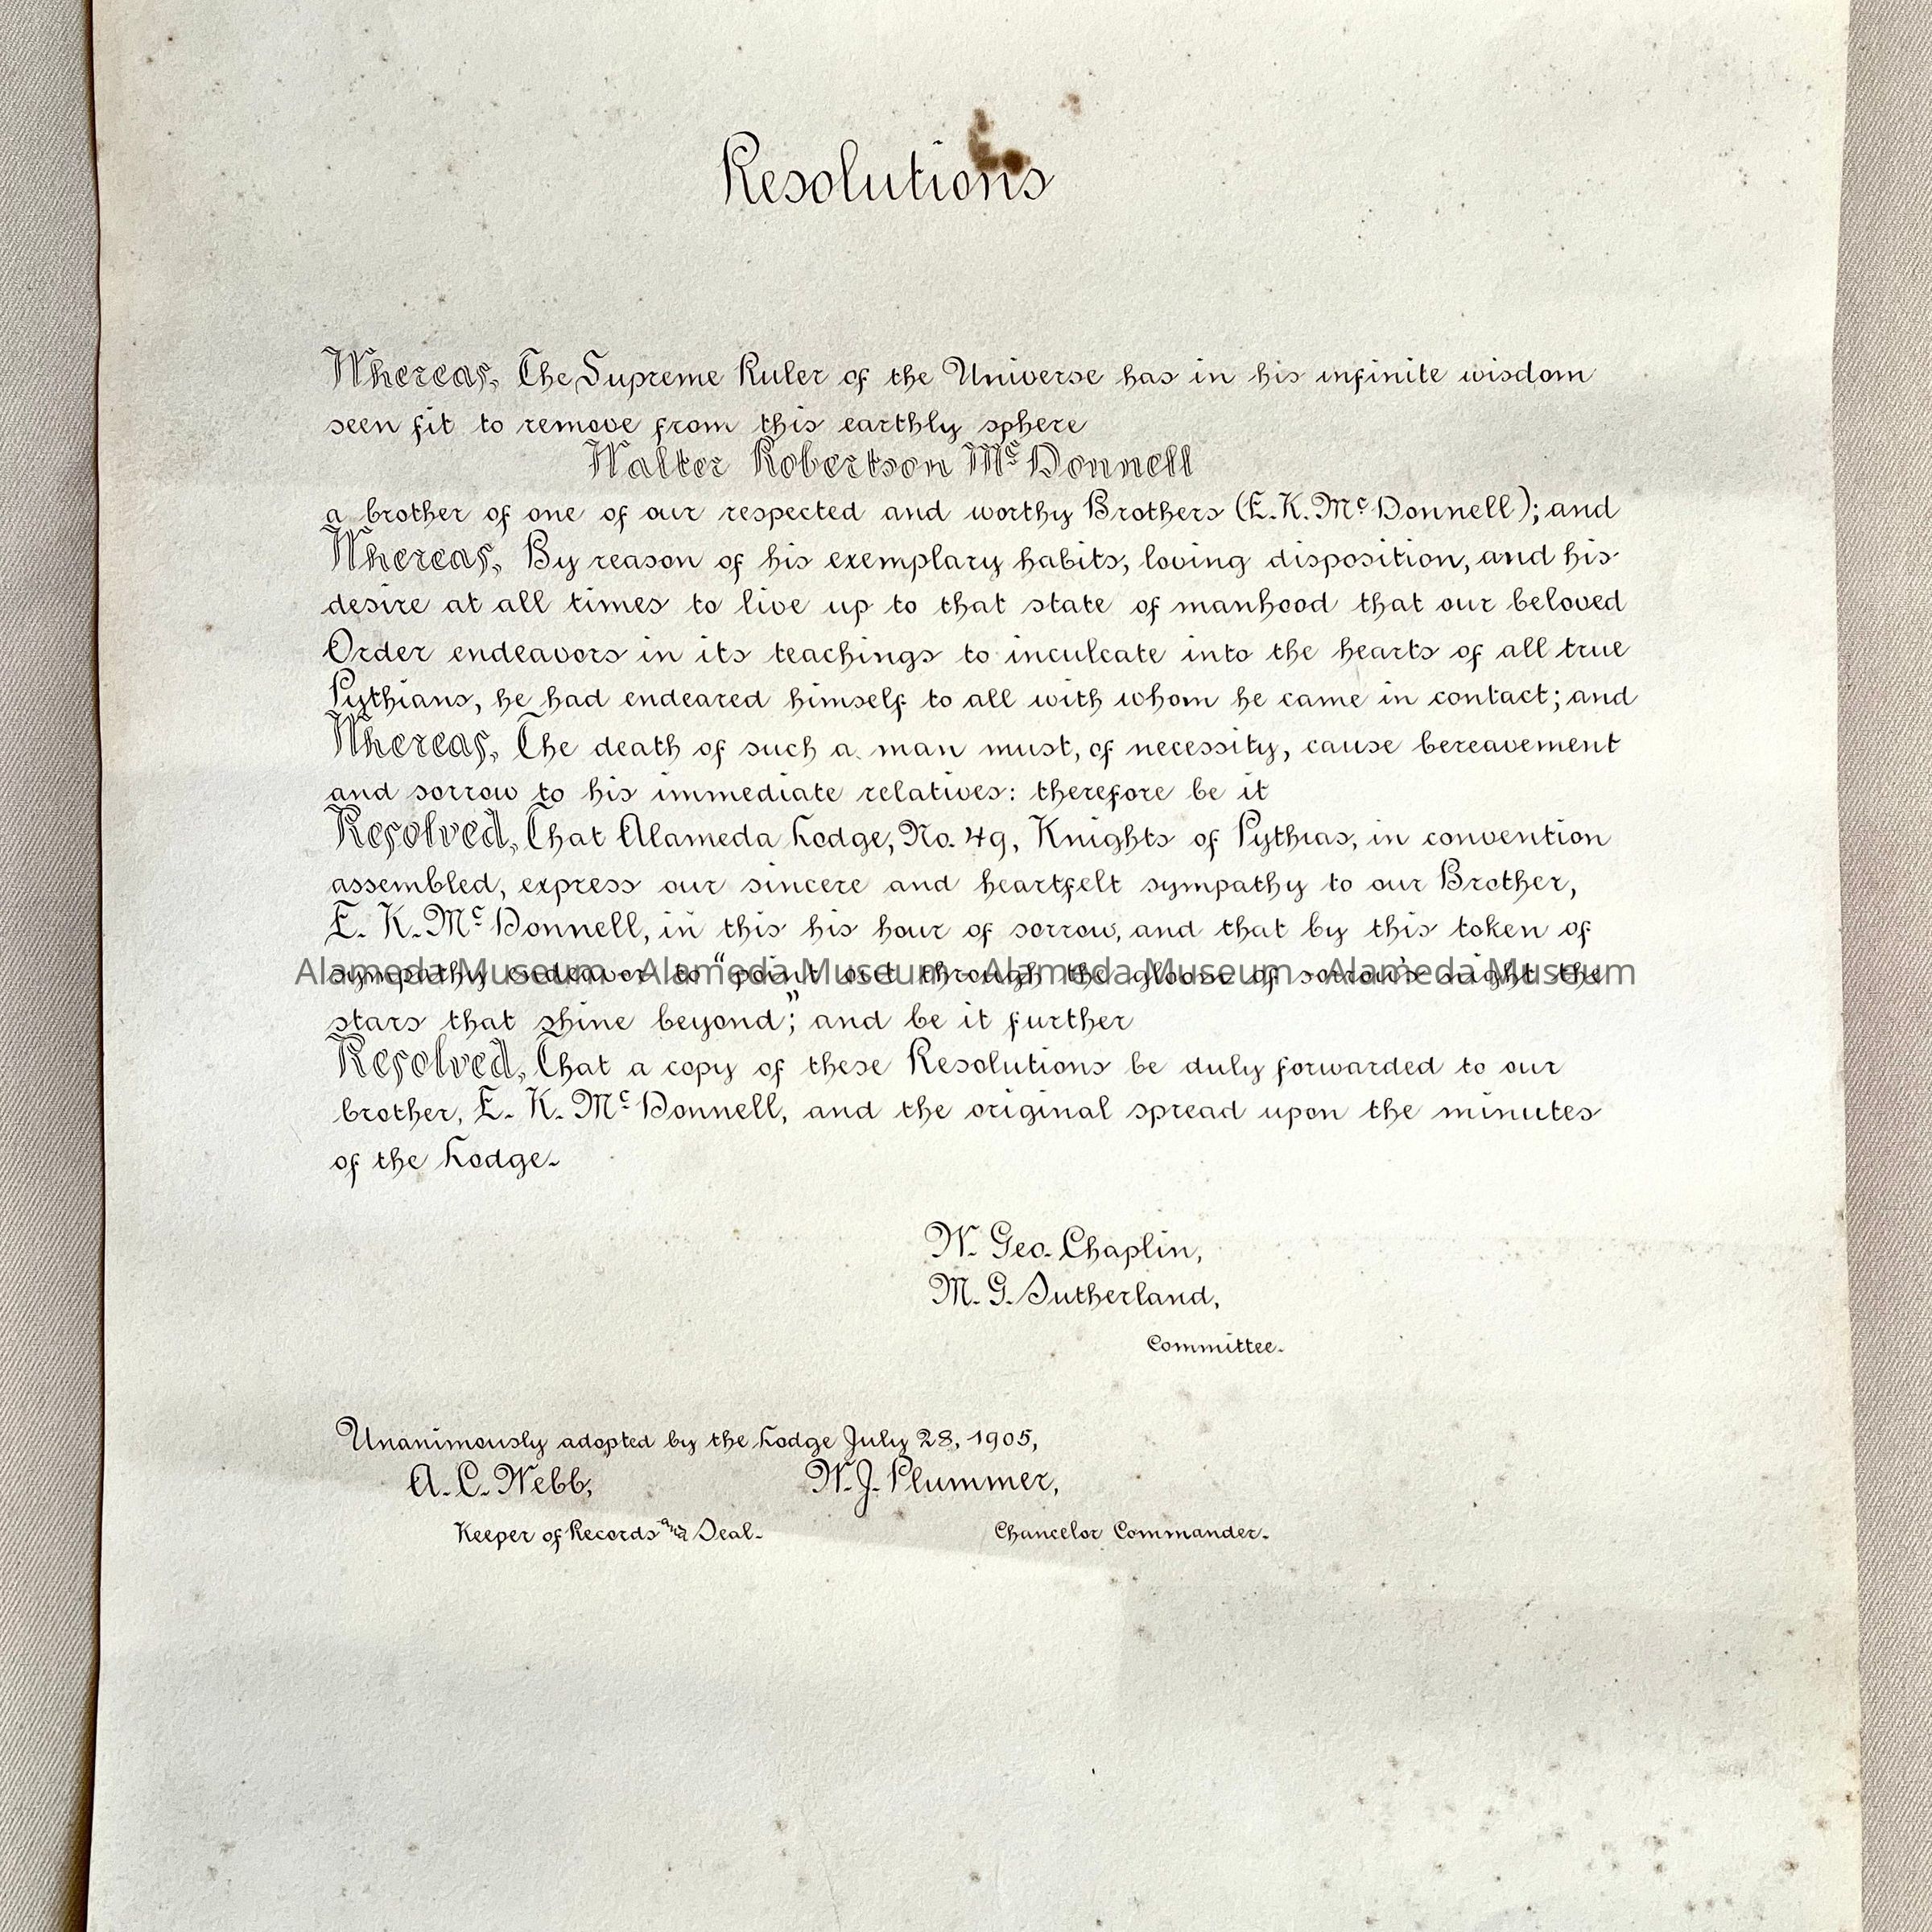 Resolutions
Whereas, The Supreme Ruler of the Universe has in his infinite wisdom
seen fit to remove from this earthly sphere
Walter Robertson McDonnell
a brother of one of our respected and worthy Brothers (E. K. McDonnell); and
Whereas, By reason of his exemplary habits, loving disposition, and his
desire at all times to live up to that state of manhood that our beloved
Order endeavors in its teachings to inculcate into the hearts of all true
Pythians, he had endeared himself to all with whom he came in contact; and
Whereas, The death of such a man must, of necessity, cause bereavement
and sorrow to his immediate relatives: therefore be it
Resolved, That Alameda Lodge, No. 49, Knights of Pythias, in convention
assembled, express our sincere and heartfelt sympathy to our Brother,
E. K. McDonnell, in this his hour of sorrow, and that by this token of
sympathy endeavor to "point out through the gloom of sorrow's night the
Alameda Museum - Alameda Museum - Alameda Museum - Alameda Museum
stars that shine beyond;" and be it further
Resolved, That a copy of these Resolutions be duly forwarded to our
brother, E. K. McDonnell, and the original spread upon the minutes
of the Lodge.
W. Geo. Chaplin,
M. G. Sutherland,
Committee.
Unanimously adopted by the Lodge July 28, 1905,
A. C. Webb, W. J. Plummer,
Keeper of Records and Seal. Chancelor Commander.